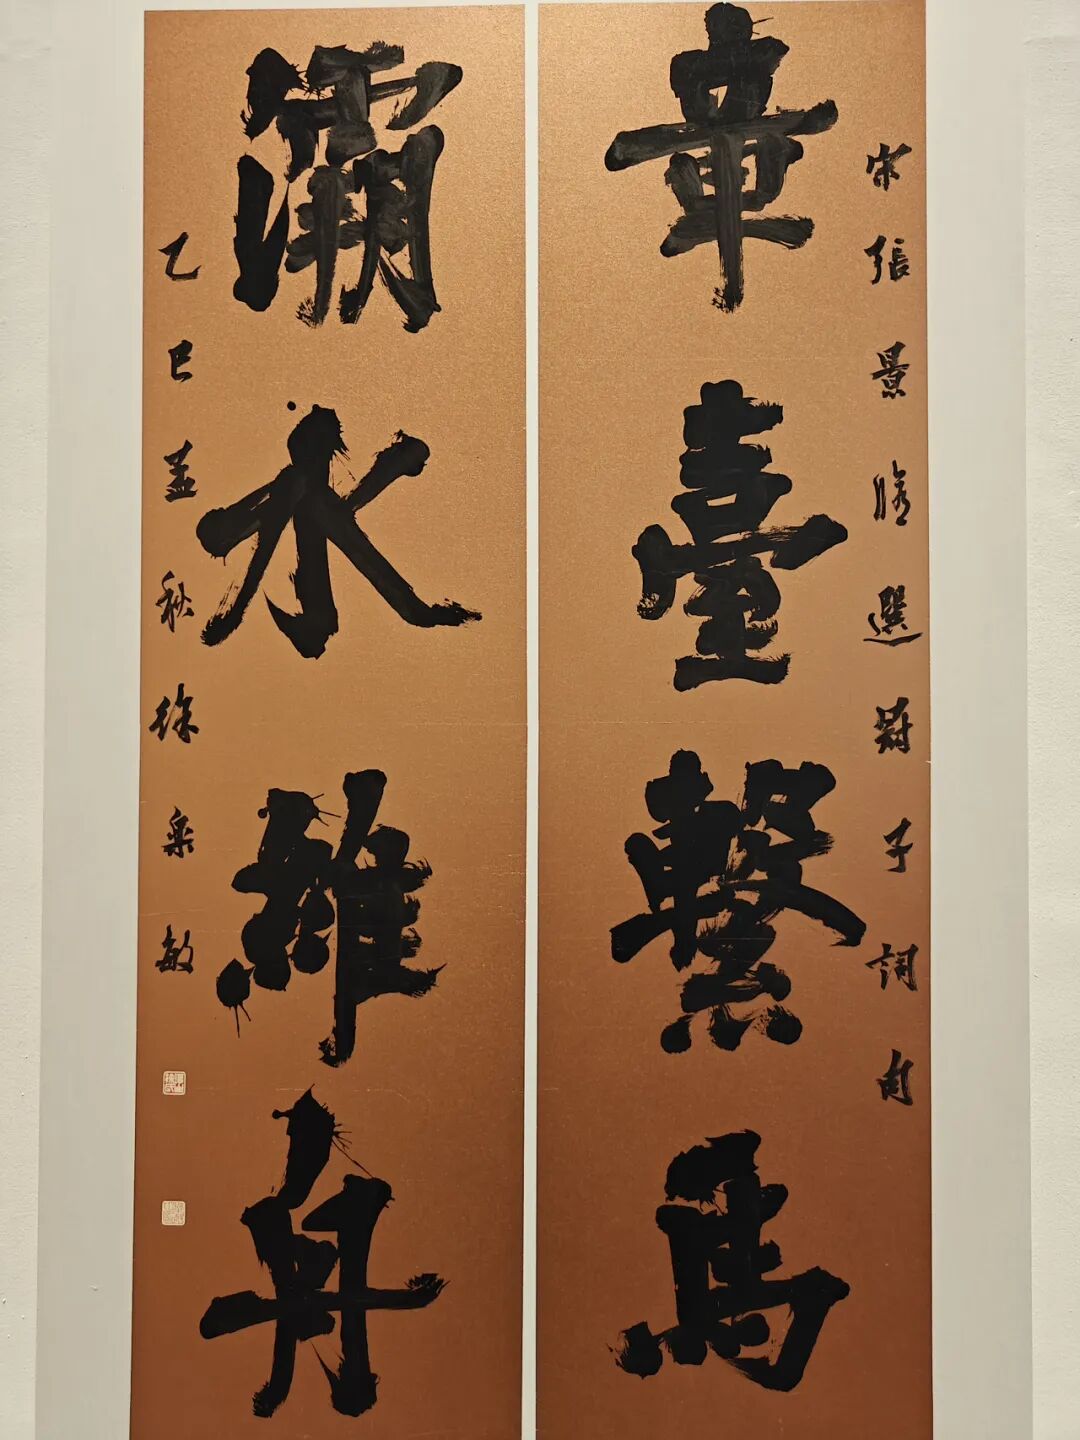 章臺繫馬
灞水維舟
宋張景脩選冠子詞句
乙巳孟秋徐樂敏